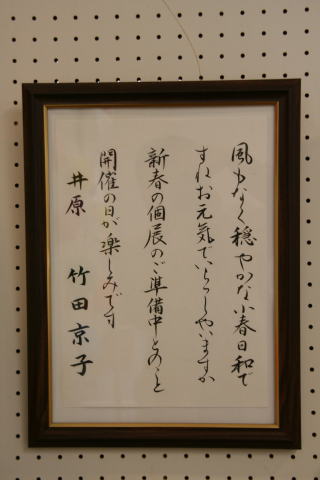 風もなく穏やかな小春日和で
すねお元気でいらっしゃいますか
新春の個展のご準備中とのこと
開催の日が楽しみです
井原 竹田京子